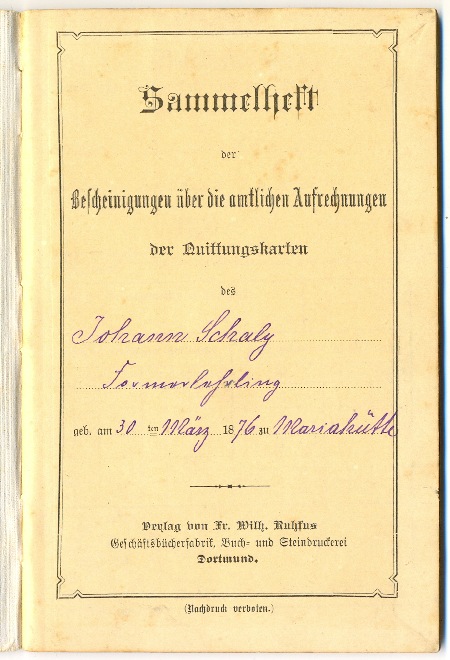 Sammelheft
der
Bescheinigungen über die amtlichen Aufrechnungen
der Quittungskarten
des
Johann Schaly
Formerlehrling
geb. am 30 ten März 1876 zu Mariahütte
Verlag von Fr. Wilh. Ruhfus
Geschäftsbücherfabrik, Buch- und Steindruckerei
Dortmund.
(Nachdruck verboten.)